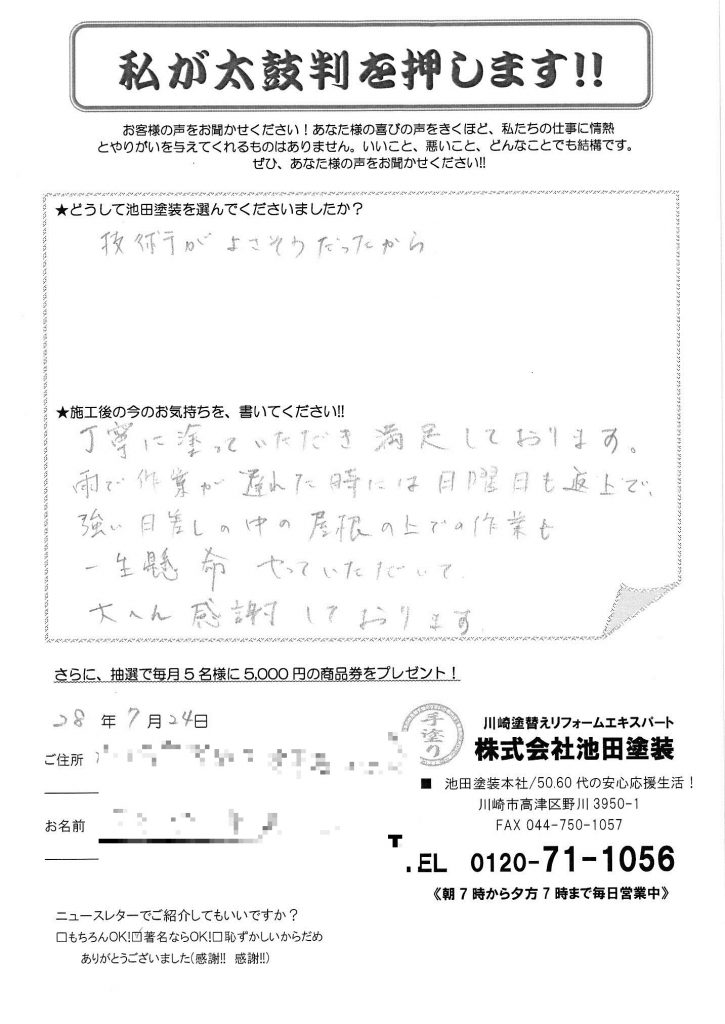 私が太鼓判を押します!!
お客様の声をお聞かせください！あなた様の喜びの声をきくほど、私たちの仕事に情熱
とやりがいを与えてくれるものはありません。いいこと、悪いこと、どんなことでも結構です。
ぜひ、あなた様の声をお聞かせください!!
★どうして池田塗装を選んでくださいましたか？
技術力がよさそうだったから
★施工後の今のお気持ちを、書いてください!!
丁寧に塗っていただき満足しております。
雨で作業が遅れた時には日曜日も返上で、
強い日差しの中の屋根の上での作業も
一生懸命やっていただいて
大へん感謝しております
さらに、抽選で毎月5名様に5,000円の商品券をプレゼント！
28年7月24日
ご住所
お名前
手塗り
川崎塗替えリフォームエキスパート
株式会社池田塗装
■ 池田塗装本社/50.60代の安心応援生活！
川崎市高津区野川3950-1
FAX 044-750-1057
T.EL 0120-71-1056
《朝7時から夕方7時まで毎日営業中》
ニュースレターでご紹介してもいいですか？
□もちろんOK!☑著名ならOK!□恥ずかしいからだめ
ありがとうございました(感謝!! 感謝!!)